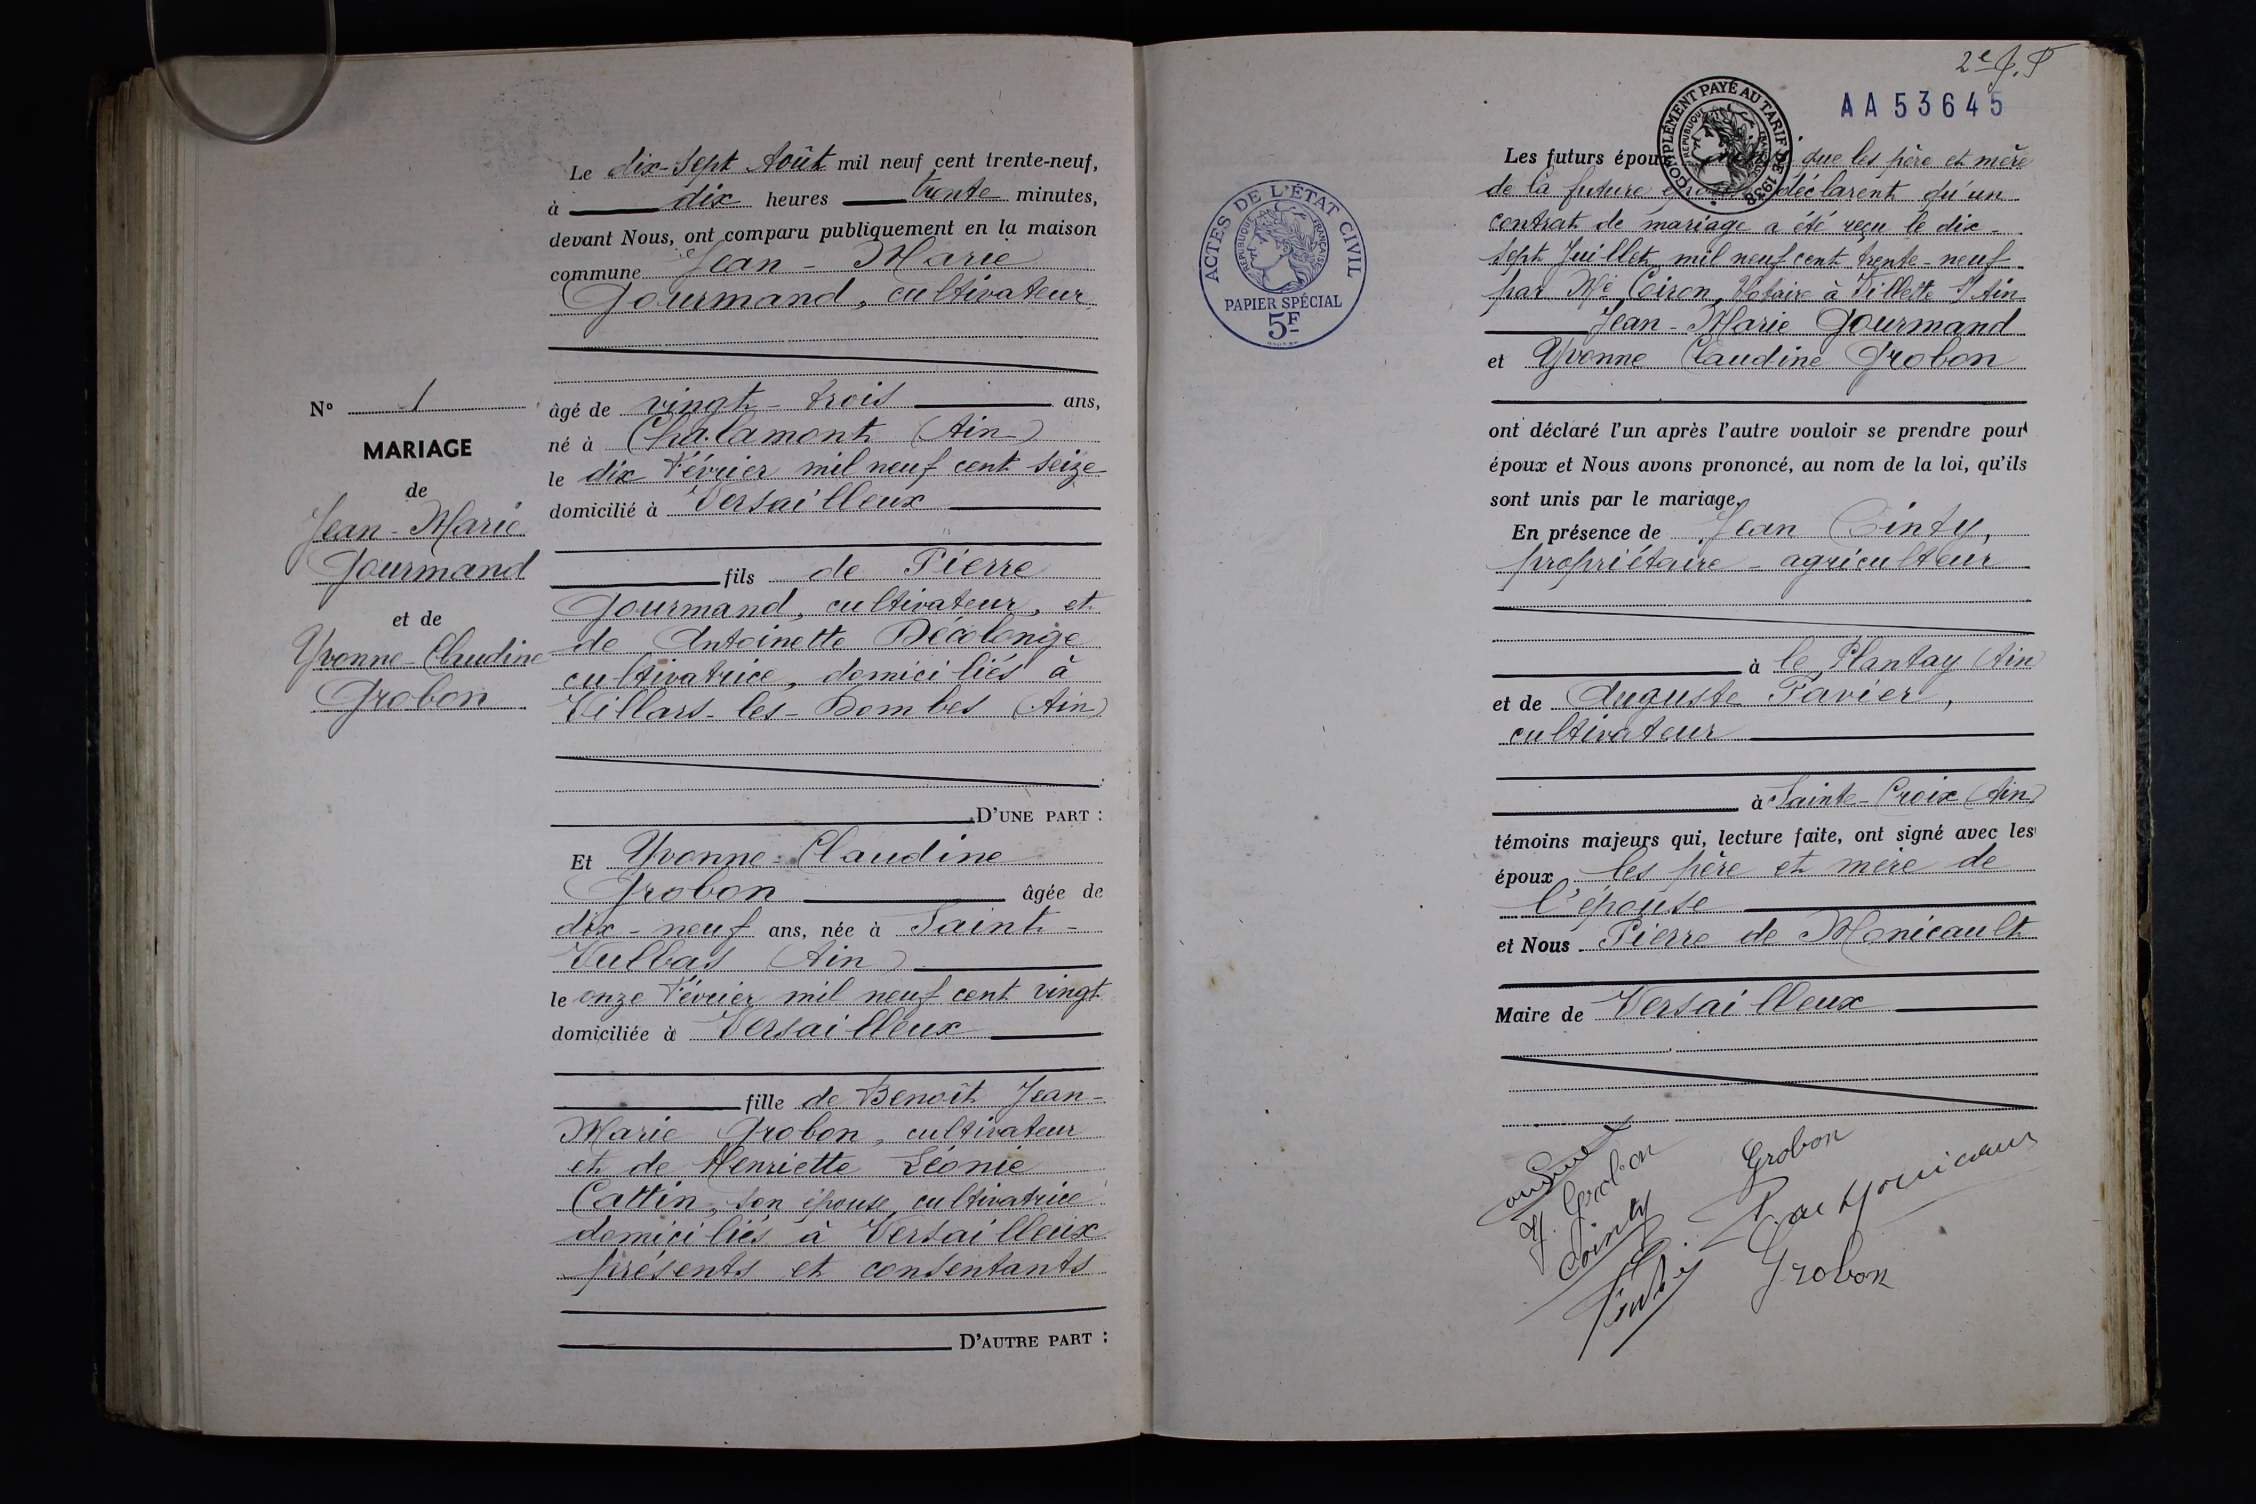 Le dix-sept Août mil neuf cent trente-neuf,
à dix heures trente minutes,
devant Nous, ont comparu publiquement en la maison
commune Jean-Marie
Gourmand, cultivateur
N° 1
MARIAGE
de
Jean-Marie
Gourmand
et de
Yvonne-Claudine
Grobon
âgé de vingt-trois ans,
né à Chalamont (Ain)
le dix Février mil neuf cent seize
domicilié à Versailleux
fils de Pierre
Gourmand, cultivateur, et
de Antoinette Décolonge
cultivatrice, domiciliés à
Villars-les-Dombes (Ain)
D'UNE PART :
Et Yvonne-Claudine
Grobon âgée de
dix-neuf ans, née à Saint-
Vulbas (Ain)
le onze Février mil neuf cent vingt
domiciliée à Versailleux
fille de Benoît Jean-
Marie Grobon, cultivateur
et de Henriette Léonie
Cattin, son épouse, cultivatrice
domiciliés à Versailleux
présents et consentants
D'AUTRE PART :
2e
AA53645
COMPLÉMENT PAYÉ AU TARIF DE 1938
RÉPUBLIQUE FRANÇAISE
ACTES DE L'ÉTAT CIVIL
RÉPUBLIQUE FRANÇAISE
PAPIER SPÉCIAL
5F
Les futurs époux que les père et mère
de la future déclarent qu'un
contrat de mariage a été reçu le dix-
sept Juillet mil neuf cent trente-neuf
par Me Coiron, Notaire à Villette s/Ain
Jean-Marie Gourmand
et Yvonne Claudine Grobon
ont déclaré l'un après l'autre vouloir se prendre pour
époux et Nous avons prononcé, au nom de la loi, qu'ils
sont unis par le mariage.
En présence de Jean Cinty,
propriétaire-agriculteur
à le Plantay (Ain)
et de Auguste Favier,
cultivateur
à Sainte-Croix (Ain)
témoins majeurs qui, lecture faite, ont signé avec les
époux les père et mère de
l'épouse
et Nous Pierre de Monicault
Maire de Versailleux
Y. Grobon
Grobon
Cointy
Grobon